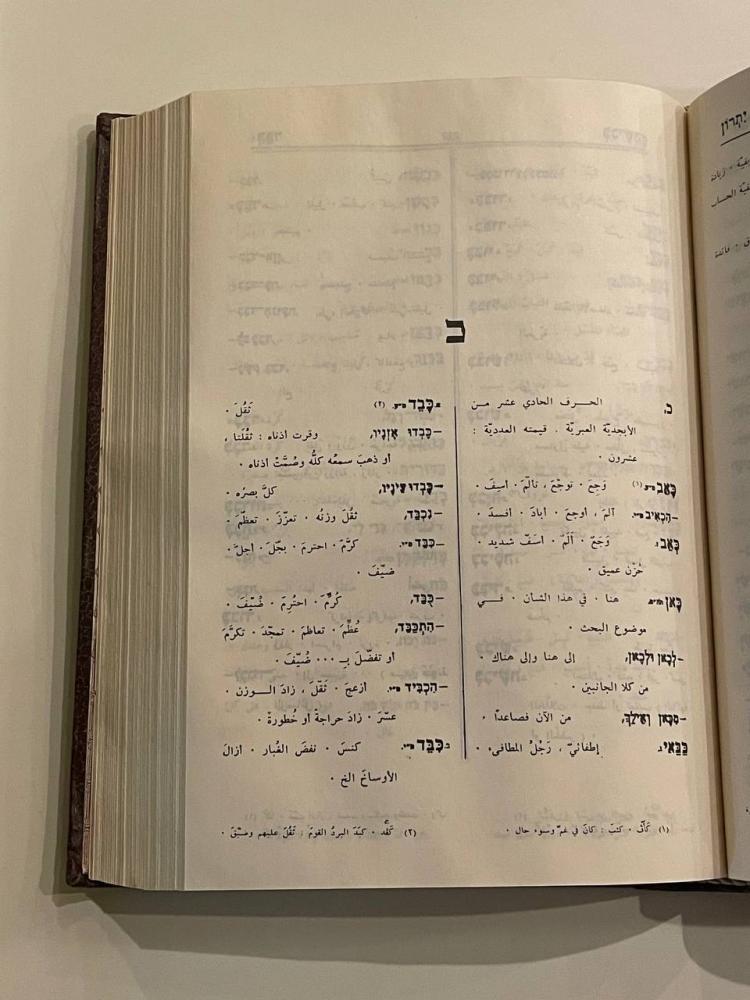 כ
כ, الحرف الحادي عشر من
الأبجديّة العبريّة . قيمته العدديّة :
عشرون .
כָּאַב פ״ע (١) وَجِعَ . توجّعَ ، تألّمَ . أسِفَ .
–הִכְאִיב פ״י. آلمَ ، أوجعَ . أبادَ . أفسدَ .
כְּאֵב ז. وَجَعٌ . أَلَمٌ . أسَفٌ شديد .
حُزْن عميق .
כָּאן תה״פ هنا . في هذا الشأن . في
موضوع البحث .
–לְכָאן וּלְכָאן, إلى هنا وإلى هناك .
من كلا الجانبين .
–מִכָּאן וְאֵילָךְ, من الآن فصاعدًا .
כַּבַּאי ז. إطفائيّ ، رَجُلُ المطافىء .
(١) كَأَبَ . كئبَ : كانَ في غمّ وسوء حال .
א.כָּבֵד פ״ע. (٢) ثَقُلَ .
–כָּבְדוּ אָזְנָיו, وقرت اذناه : ثقُلَتا ،
أو ذهبَ سمعُه كلُّه وصُمَّتْ أذناه .
–כָּבְדוּ עֵינָיו, كلَّ بصرُه .
–נִכְבַּד, ثقُلَ وزنُه . تعزّزَ . تعظّمَ .
–כִּבֵּד פ״י. كرَّمَ . احترمَ . بجّلَ . أجلَّ .
ضيّفَ .
–כֻּבַּד, كُرِّمَ . احتُرِمَ . ضُيِّفَ .
–הִתְכַּבֵּד, عُظِّمَ . تعاظمَ . تمجّدَ . تكرَّمَ
أو تفضّلَ بِـ ... ضُيِّفَ .
–הִכְבִּיד פ״י. أزعجَ . ثقّلَ ، زادَ الـوزن .
عسّرَ . زادَ حراجةً أو خُطورةً .
ב.כִּבֵּד פ״י. كنسَ . نفضَ الغُبار . أزالَ
الأوساخَ الخ .
(٢) كبَدَ . كبَدَ البردُ القومَ : ثقُلَ عليهم وضيّقَ .
יִתְרוֹן